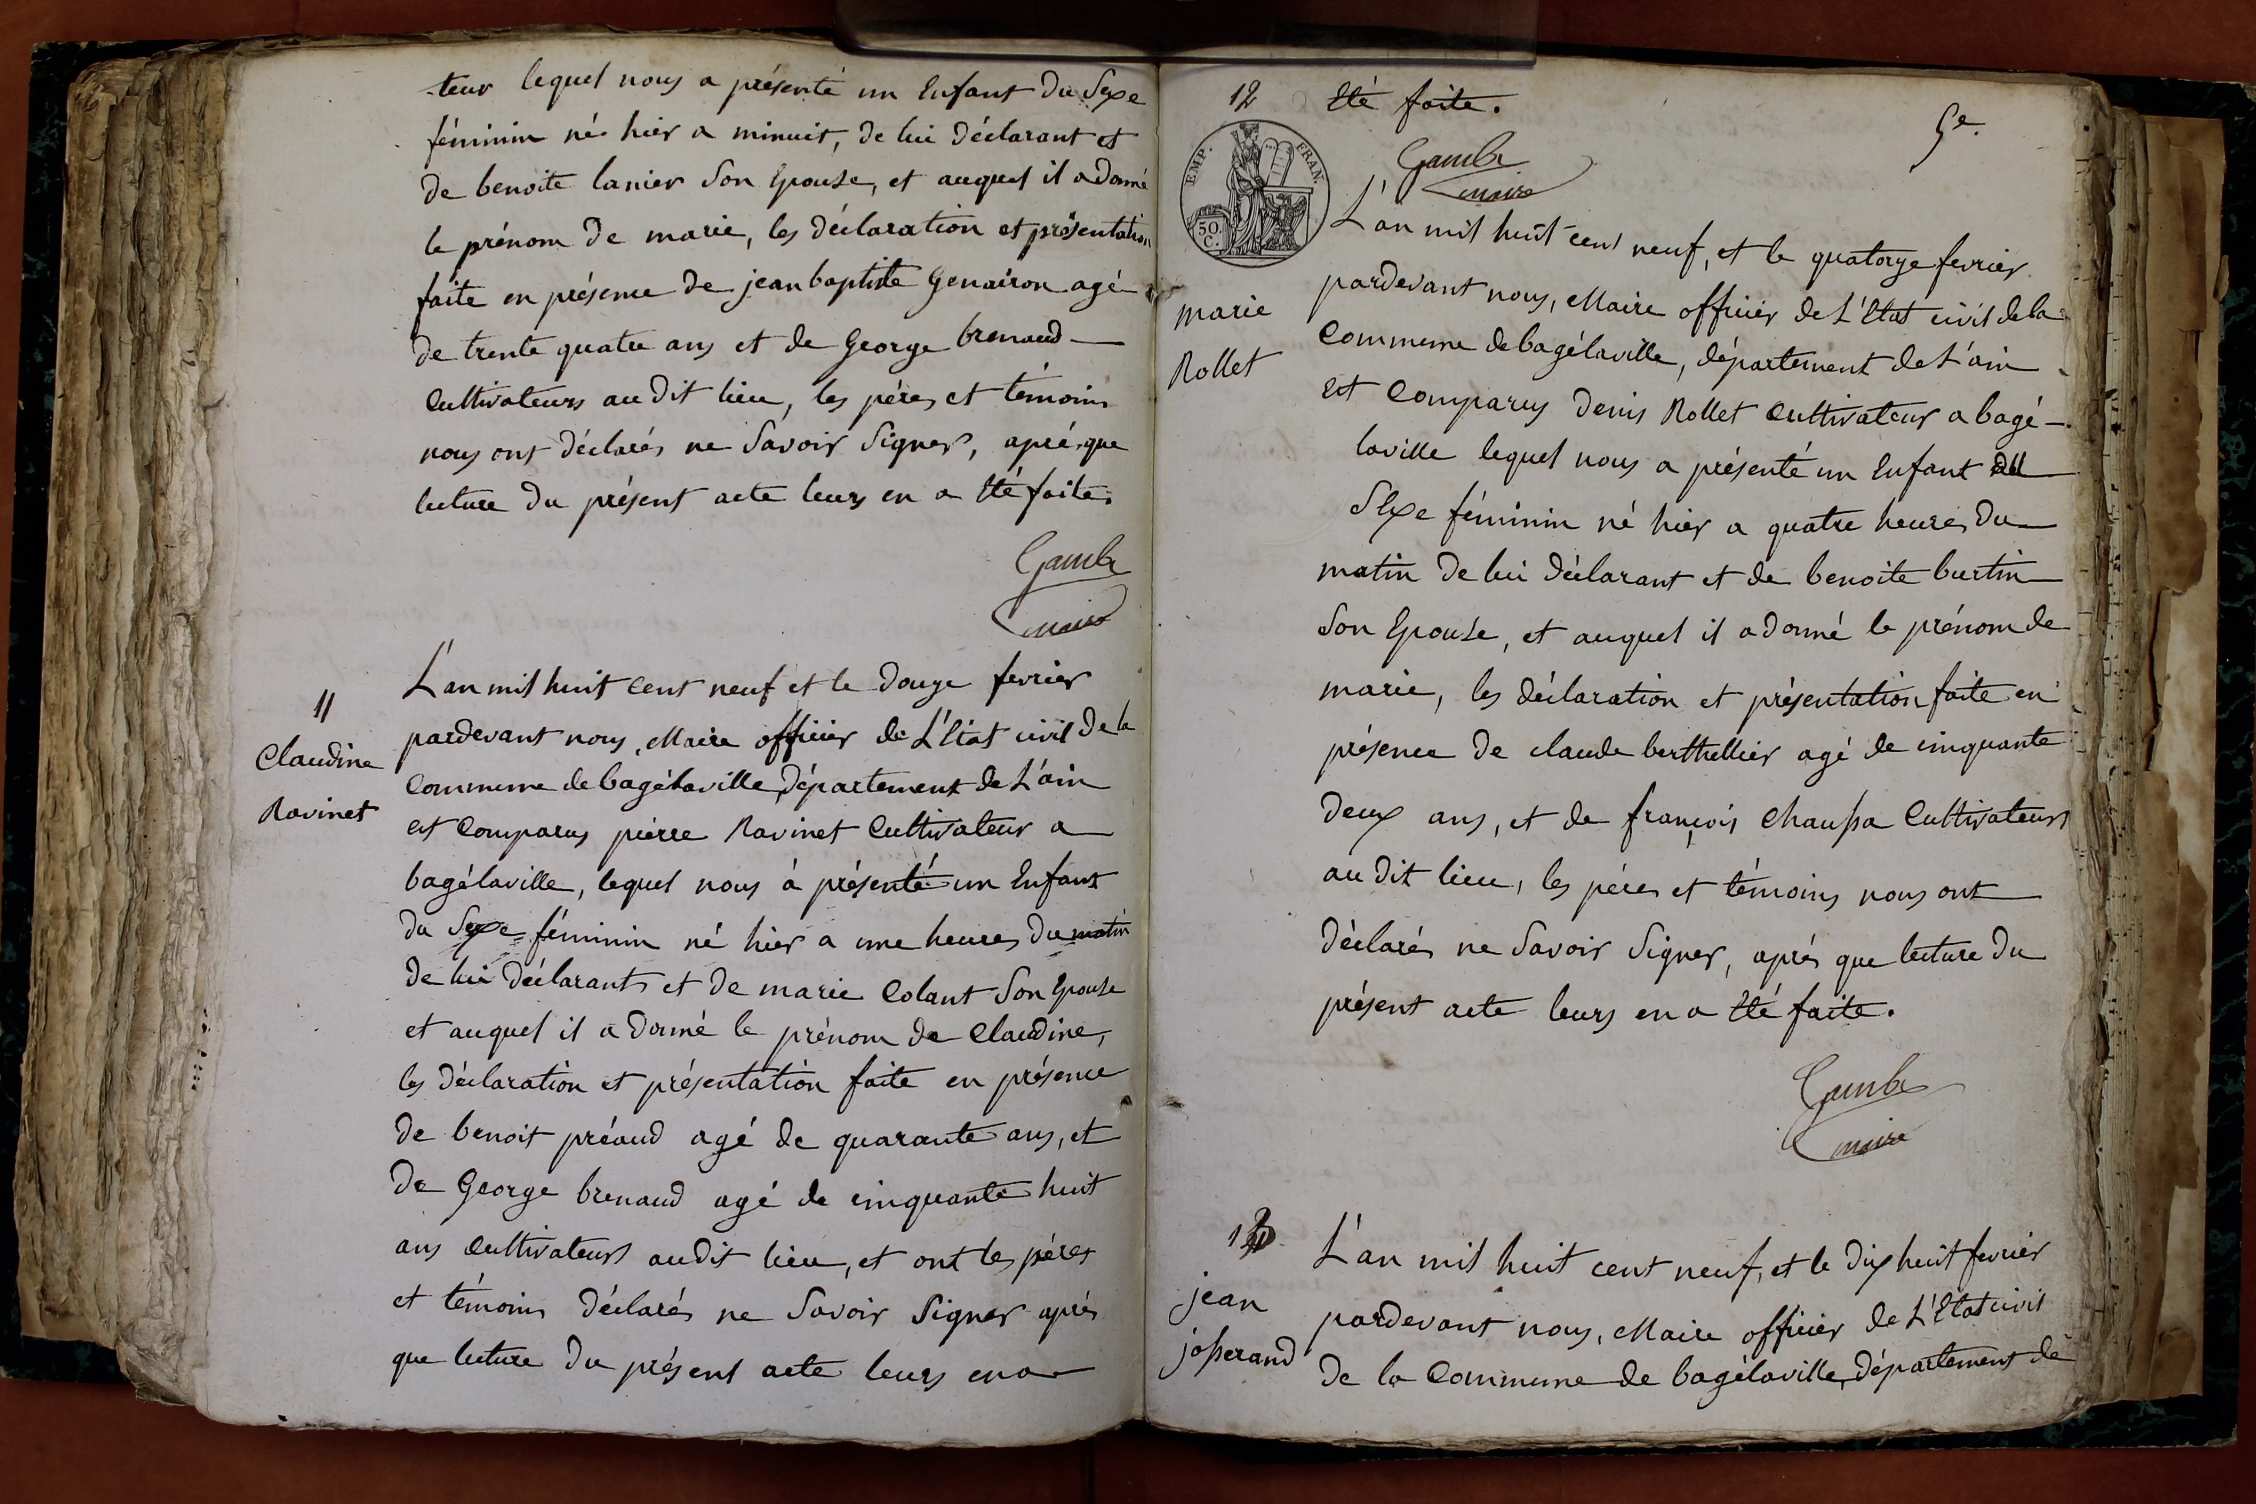 teur lequel nous a présenté un Enfant du Sexe
féminin né hier a minuit, de lui déclarant et
de benoite lanier Son Epouse, et auquel il a donné
le prénom de marie, les déclaration et présentation
faite en présence de jean baptiste Genairon agé
de trente quatre ans et de George brenaud
Cultivateurs au dit lieu, les péres et témoins
nous ont déclarés ne Savoir Signer, aprés que
lecture du présent acte leurs en a Eté faite.
Gambe
maire
11
Claudine
Ravinet
L'an mil huit cent neuf et le douze fevrier
pardevant nous, Maire officier de L'Etat civil de la
Commune de bagélaville, département de L'ain
est Comparus pierre Ravinet Cultivateur a
bagélaville, lequel nous à présenté un Enfant
du Sexe féminin né hier a une heures du matin
de lui déclarant et de marie Colant Son Epouse
et auquel il a donné le prénom de Claudine,
les déclaration et présentation faite en présence
de benoit préaud agé de quarante ans, et
de George brenaud agé de cinquante huit
ans Cultivateurs audit lieu, et ont les péres
et témoins déclarés ne Savoir Signer aprés
que lecture du présent acte leurs en a
Eté faite.
5e.
Gambe
maire
EMP. FRAN.
50.
C.
12
marie
Rollet
L'an mil huit cent neuf, et le quatorze fevrier
pardevant nous, Maire officier de L'Etat civil de la
Commune de bagélaville, département de L'ain
est Comparus denis Rollet Cultivateur a bagé-
laville lequel nous a présenté un Enfant du
Sexe féminin né hier a quatre heures du
matin de lui déclarant et de benoite burtin
Son Epouse, et auquel il a donné le prénom de
marie, les déclaration et présentation faite en
présence de claude berthellier agé de cinquante
deux ans, et de françois Chaussa Cultivateurs
au dit lieu, les péres et témoins nous ont
déclarés ne Savoir Signer, aprés que lecture du
présent acte leurs en a Eté faite.
Gambe
maire
13
jean
josserand
L'an mil huit cent neuf, et le dix huit fevrier
pardevant nous, Maire officier de L'Etat civil
de la Commune de bagélaville, département de